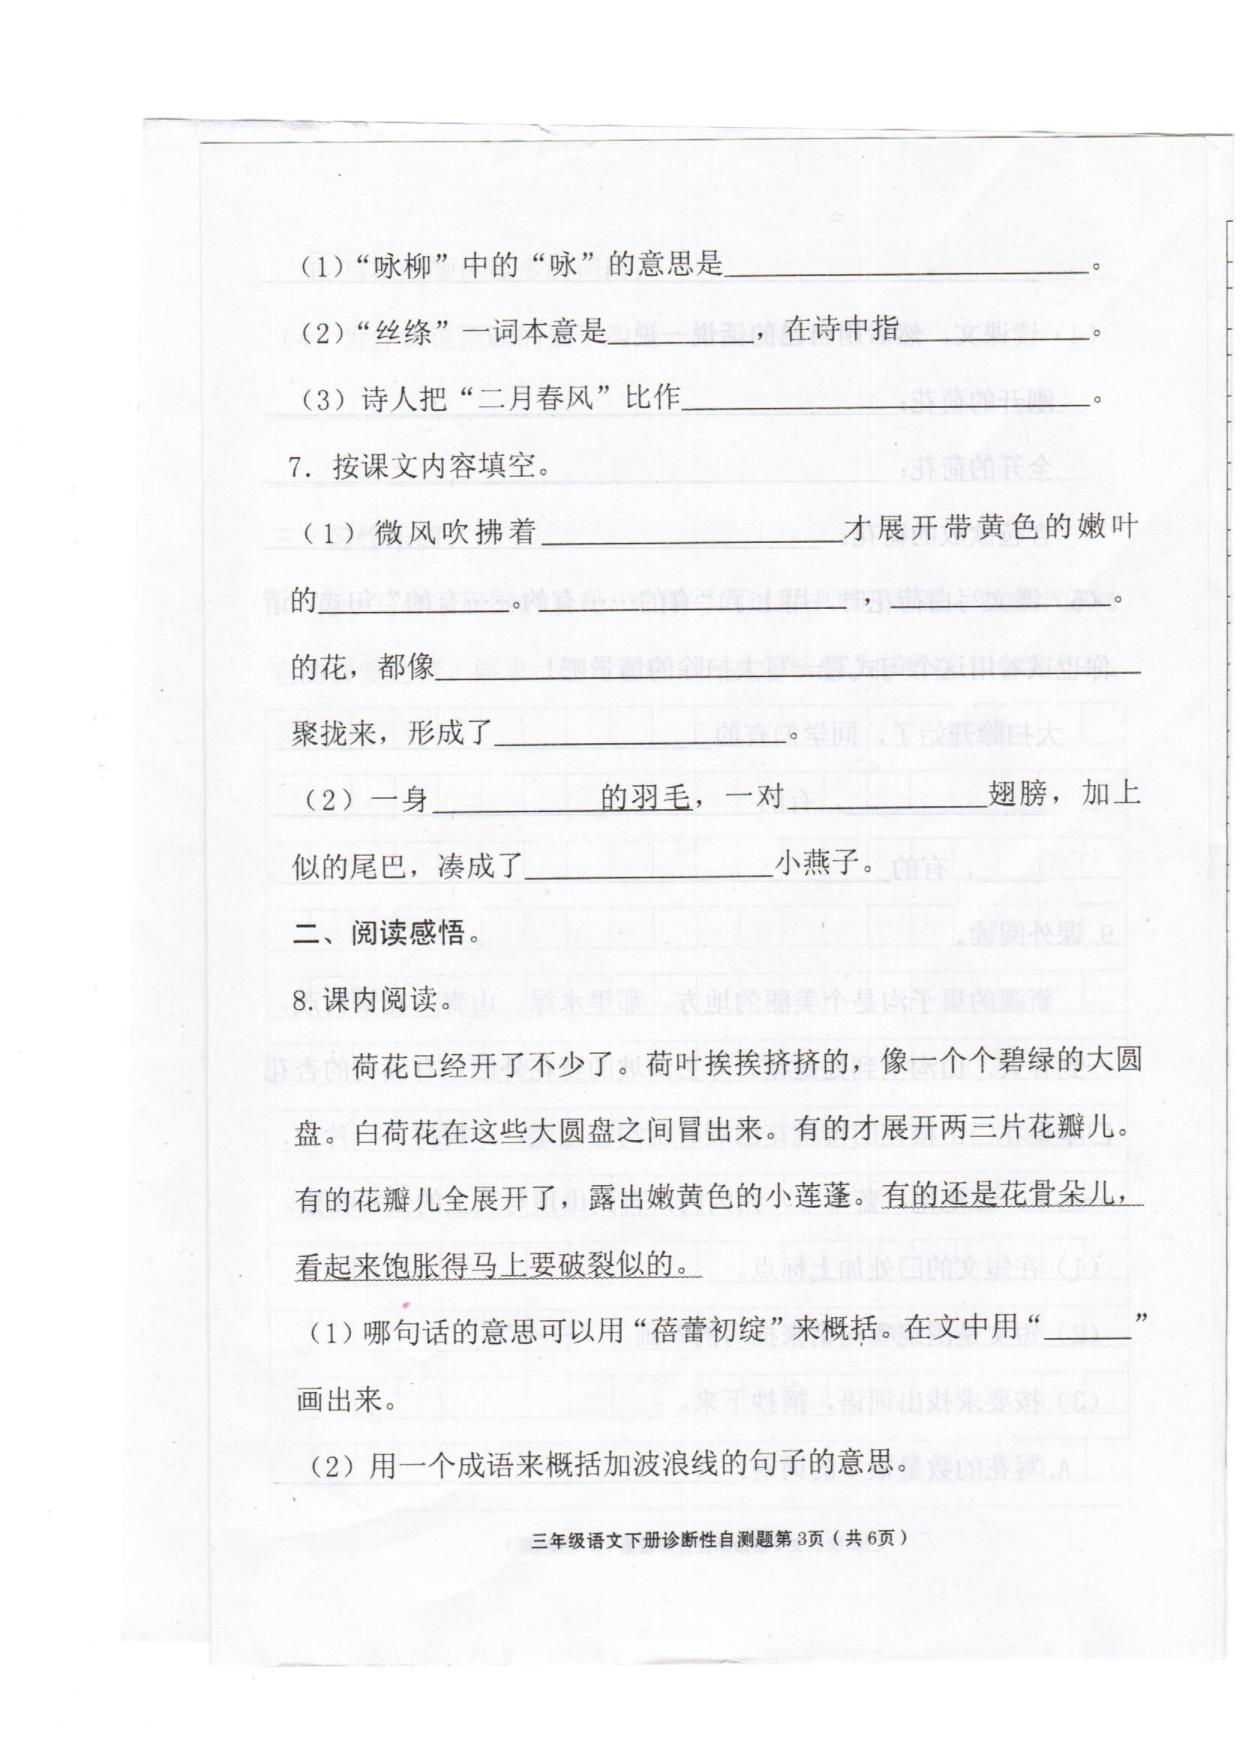 （1）“咏柳”中的“咏”的意思是____________。
（2）“丝绦”一词本意是__________，在诗中指____________。
（3）诗人把“二月春风”比作____________。
7．按课文内容填空。
（1）微风吹拂着____________才展开带黄色的嫩叶
的____________。____________，____________。
的花，都像____________
聚拢来，形成了____________。
（2）一身__________的羽毛，一对__________翅膀，加上
似的尾巴，凑成了____________小燕子。
二、阅读感悟。
8.课内阅读。
荷花已经开了不少了。荷叶挨挨挤挤的，像一个个碧绿的大圆
盘。白荷花在这些大圆盘之间冒出来。有的才展开两三片花瓣儿。
有的花瓣儿全展开了，露出嫩黄色的小莲蓬。有的还是花骨朵儿，
看起来饱胀得马上要破裂似的。
（1）哪句话的意思可以用“蓓蕾初绽”来概括。在文中用“______”
画出来。
（2）用一个成语来概括加波浪线的句子的意思。
三年级语文下册诊断性自测题第3页（共6页）